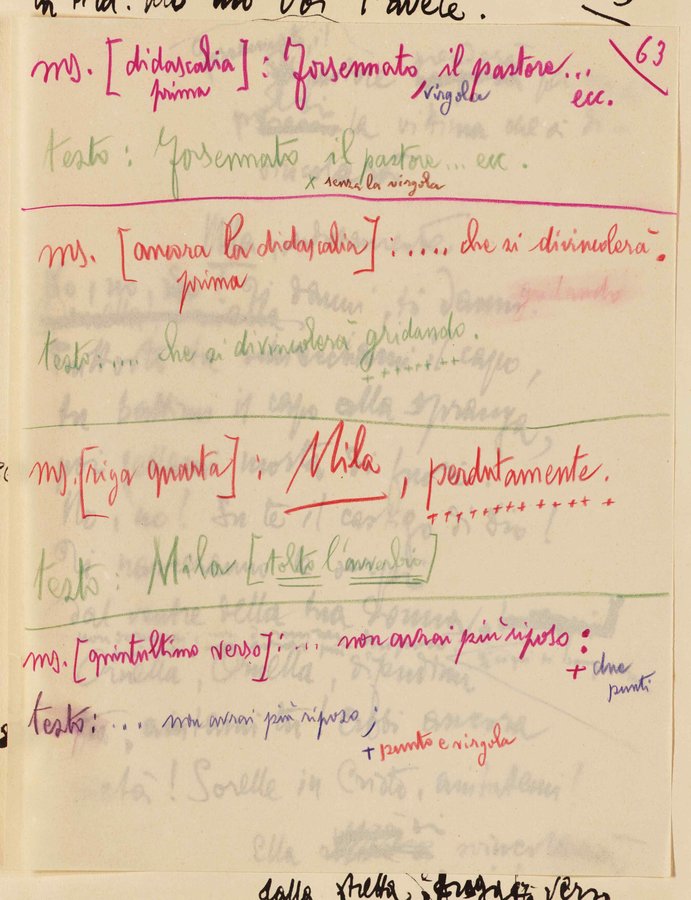 voi l'avete.
63
ms. [didascalia] : Forsennato, il pastore...
prima virgola ecc.
testo : Forsennato il pastore... ecc.
x senza la virgola
ms. [ancora la didascalia] ..... che si divincolerà.
prima
gridando
testo: .... che si divincolerà gridando.
+ + + + + + +
ms. [riga quarta] : Mila, perdutamente.
+ + + + + + + + + + + +
testo: Mila [tolto l'avverbio]
ms. [quintultimo verso] : ... non avrai più riposo :
+ due
punti
testo: ... non avrai più riposo ;
+ punto e virgola
Sorelle in Cristo, aiutatemi!
Ella
dalla stretta,